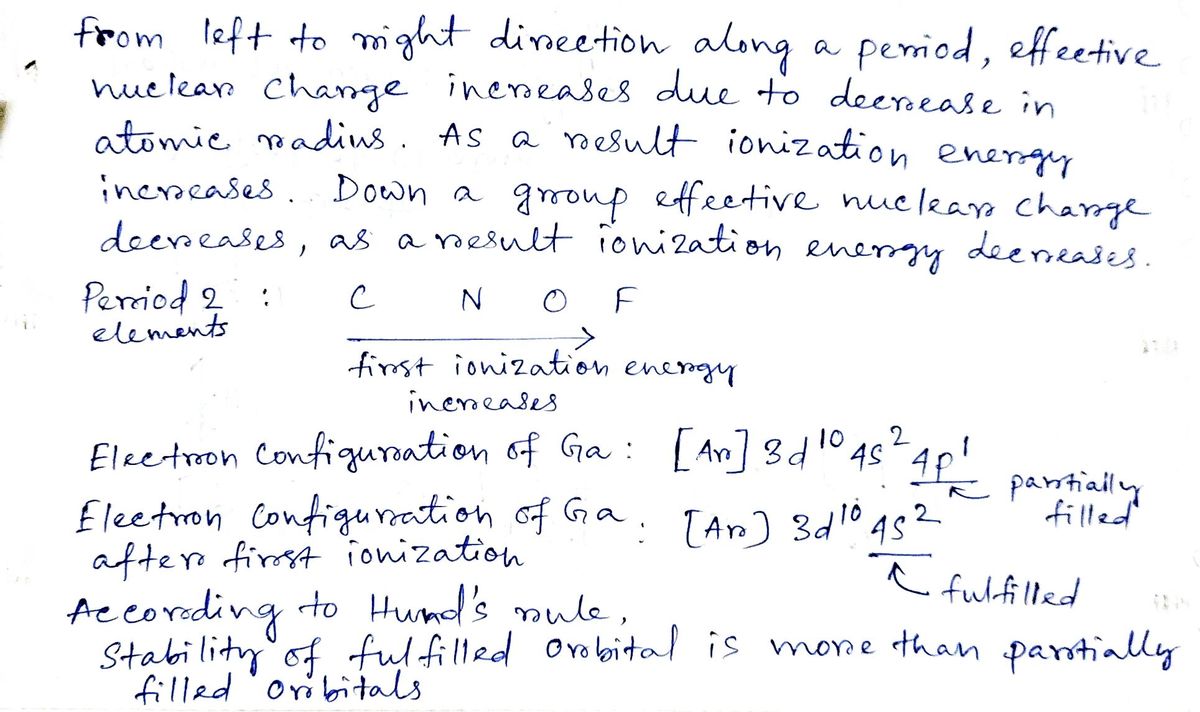 from left to right direction along a period, effective
nuclear charge increases due to decrease in
atomic radius. As a result ionization energy
increases. Down a group effective nuclear charge
decreases, as a result ionization energy decreases.
Period 2 : C N O F
elements
first ionization energy
increases
Electron Configuration of Ga : [Ar] 3d¹⁰ 4s² 4p¹
partially
filled
Electron Configuration of Ga : [Ar] 3d¹⁰ 4s²
after first ionization
fulfilled
According to Hund's rule,
Stability of fulfilled orbital is more than partially
filled orbitals